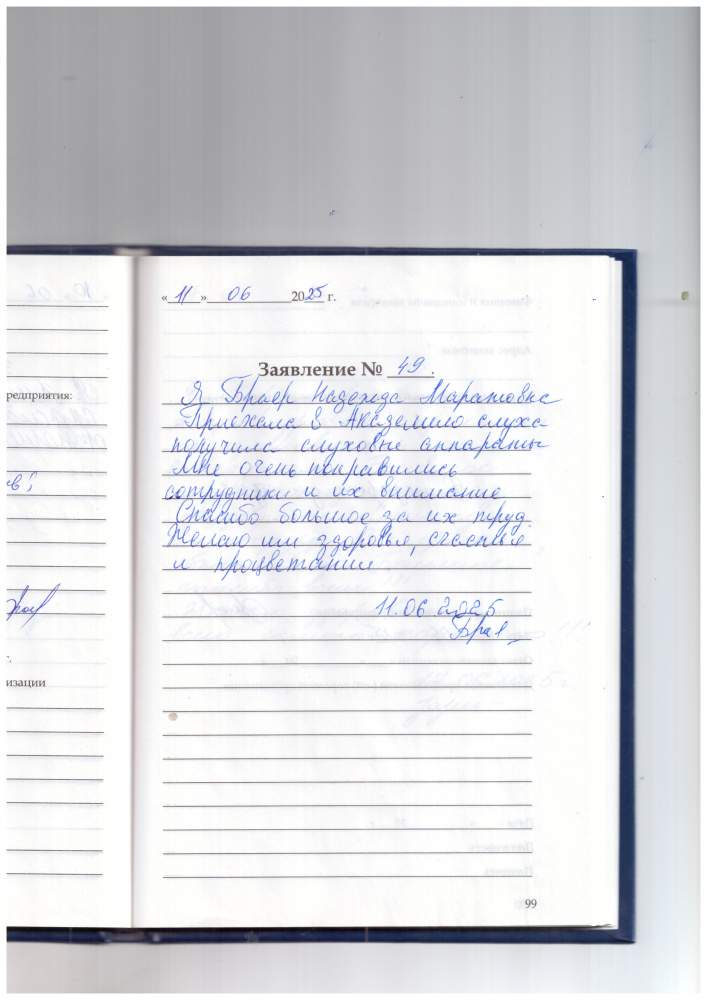 « 11 » 06 2025 г.
Заявление № 49.
Я Браер Надежда Маратовна
Приехала в Академию слуха
получила слуховые аппараты
Мне очень понравились
сотрудники и их внимание
Спасибо большое за их труд.
Желаю им здоровья, счастья
и процветания
11.06 2025
99
редприятия:
г.
изации